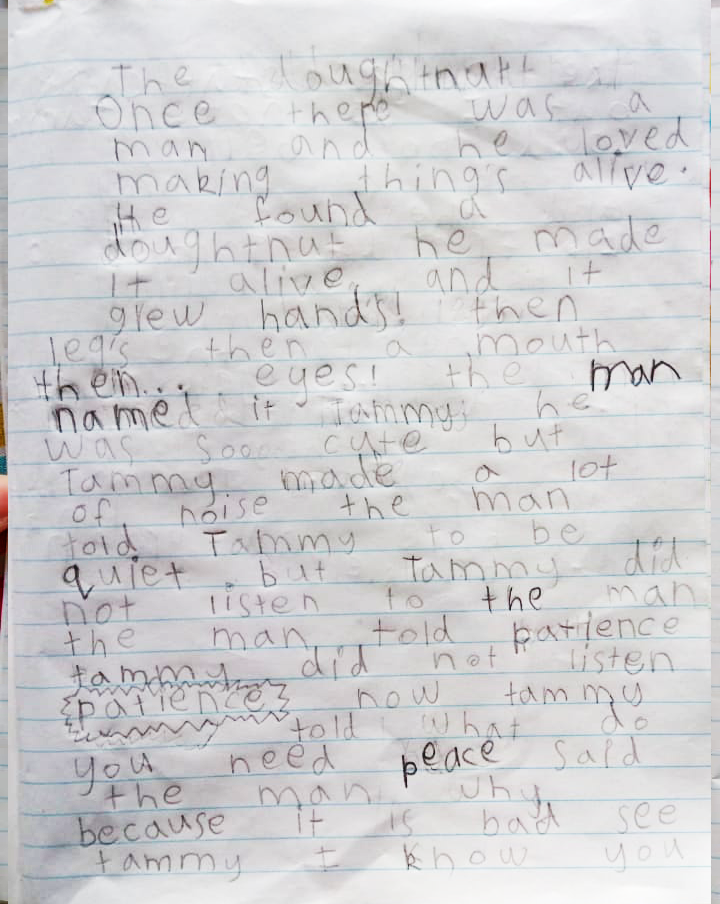 The doughtnutt
Once there was a
man and he loved
making thing's alive.
He found a
doughtnut he made
it alive and it
grew hands! then
leg's then a mouth
then... eyes! the man
named it Tammy he
was soo cute but
Tammy made a lot
of noise the man
told Tammy to be
quiet but Tammy did
not listen to the man
the man told patience
tammy did not listen
patience now tammy
told what do
you need peace said
the man why
because it is bad see
tammy I know you